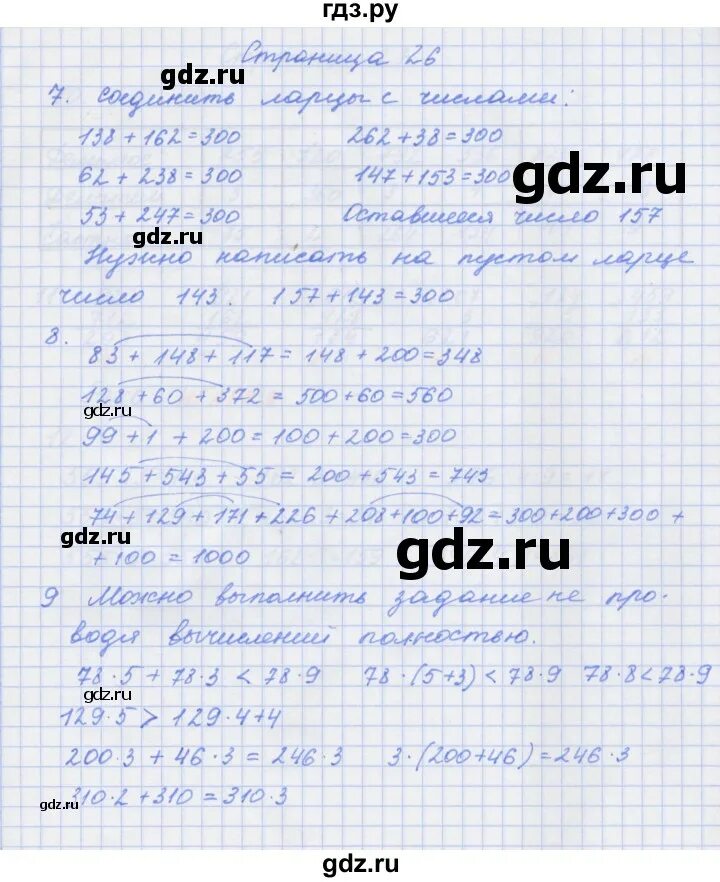 гдз.ру
Страница 26
gdz.ru
7. Соединить ларцы с числами:
138 + 162 = 300 262 + 38 = 300
gdz.ru
62 + 238 = 300 147 + 153 = 300
53 + 247 = 300 Оставшееся число 157
gdz.ru
Нужно написать на пустом ларце
число 143. 157 + 143 = 300
8.
83 + 148 + 117 = 148 + 200 = 348
128 + 60 + 372 = 500 + 60 = 560
gdz.ru
99 + 1 + 200 = 100 + 200 = 300
145 + 543 + 55 = 200 + 543 = 743
74 + 129 + 171 + 226 + 208 + 100 + 92 = 300 + 200 + 300 +
gdz.ru
gdz.ru
+ 100 = 1000
9 Можно выполнить задание не про-
водя вычислений полностью.
78·5 + 78·3 < 78·9 78·(5+3) < 78·9 78·8 < 78·9
gdz.ru
129·5 > 129·4+4
200·3 + 46·3 = 246·3 3·(200+46) = 246·3
310·2 + 310 = 310·3
gdz.ru
gdz.ru
gdz.ru